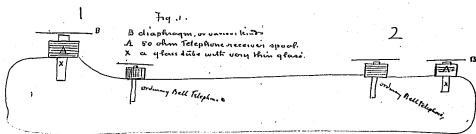 Fig. 1.
1
B diaphragm, or various kinds
A 50 ohm Telephone receiver spool.
X a glass tube with very thin glass.
2
B
A
X
ordinary Bell Telephone
ordinary Bell Telephone,
A
B
X